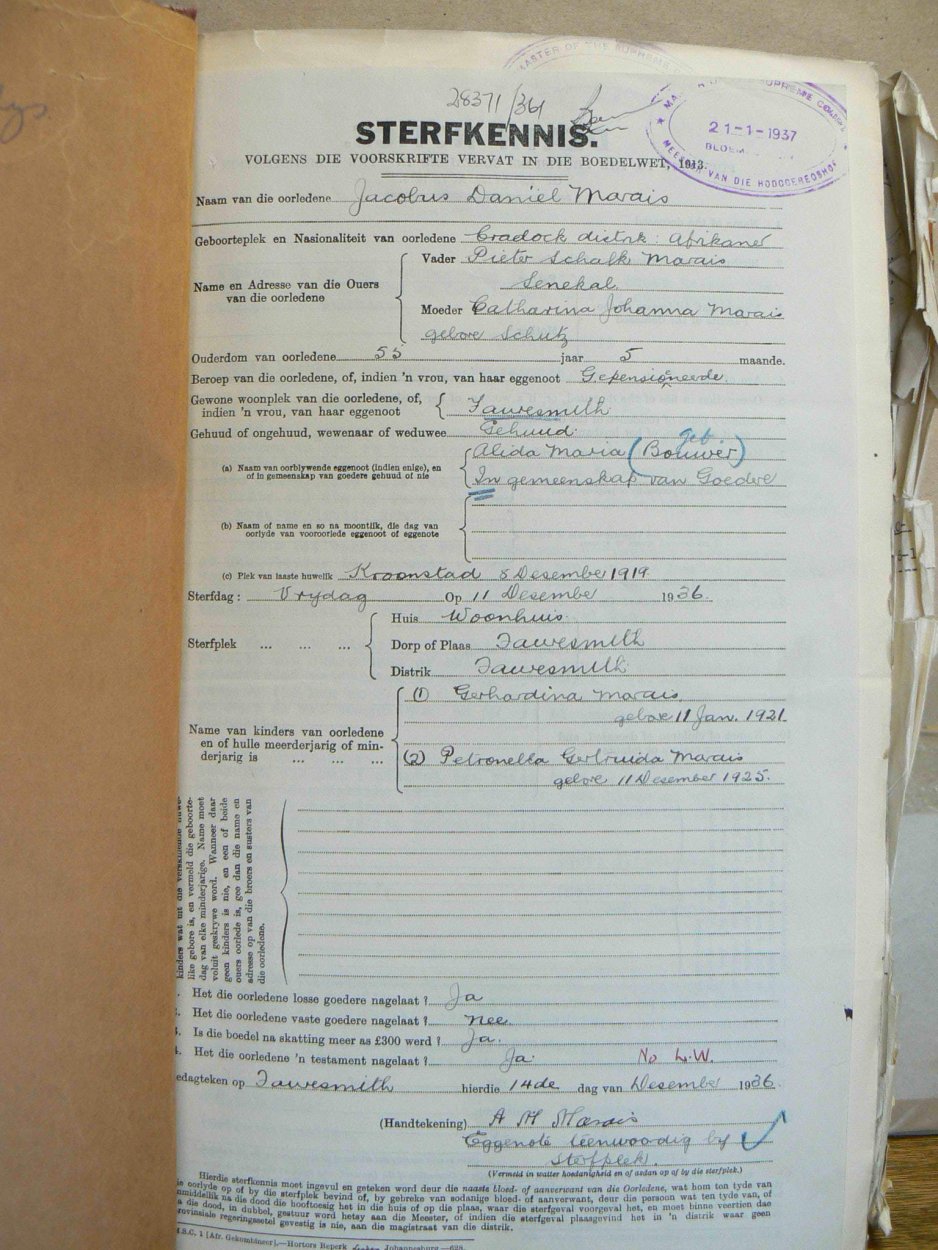 28371/36
MASTER OF THE SUPREME
SUPREME COURT
21-1-1937
BLOEM
MEESTER VAN DIE HOOGGEREGSHOF
STERFKENNIS.
VOLGENS DIE VOORSKRIFTE VERVAT IN DIE BOEDELWET, 1913.
Naam van die oorledene Jacobus Daniël Marais
Geboorteplek en Nasionaliteit van oorledene Cradock distrk: Afrikaner
Name en Adresse van die Ouers van die oorledene
Vader Pieter Schalk Marais
Senekal
Moeder Catharina Johanna Marais
gebore Schutz
Ouderdom van oorledene 55 jaar 5 maande.
Beroep van die oorledene, of, indien 'n vrou, van haar eggenoot Gepensioneerde.
Gewone woonplek van die oorledene, of, indien 'n vrou, van haar eggenoot
Fauresmith
Gehuud of ongehuud, wewenaar of weduwee Gehuud.
geb.
(a) Naam van oorblywende eggenoot (indien enige), en of in gemeenskap van goedere gehuud of nie
Alida Maria (Bouwer)
In gemeenskap van Goedere
(b) Naam of name en so na moontlik, die dag van oorlyde van vooroorlede eggenoot of eggenote
(c) Plek van laaste huwelik Kroonstad 8 Desember 1919
Sterfdag: Vrydag Op 11 Desember 1936.
Sterfplek ... ... ...
Huis Woonhuis.
Dorp of Plaas Fauresmith
Distrik Fauresmith
Name van kinders van oorledene en of hulle meerderjarig of minderjarig is ... ... ...
(1) Gerhardina Marais
gebore 11 Jan. 1921.
(2) Petronella Gertruida Marais
gebore 11 Desember 1925.
like gebore is, en vermeld die geboorte-
dag van elke minderjarige. Name moet
voluit geskrywe word. Wanneer daar
geen kinders is nie, en een of beide
ouers oorlede is, gee dan die name en
adresse op van die broers en susters van
die oorledene.
Het die oorledene losse goedere nagelaat? Ja
Het die oorledene vaste goedere nagelaat? Nee.
Is die boedel na skatting meer as £300 werd? Ja.
Het die oorledene 'n testament nagelaat? Ja. No L.W.
edagteken op Fauresmith hierdie 14de dag van Desember 1936.
(Handtekening) A M Marais
Eggenote teenwoordig by
sterfplek.
(Vermeld in watter hoedanigheid en of aedan op of by die sterfplek.)
Hierdie sterfkennis moet ingevul en geteken word deur die naaste bloed- of aanverwant van die Oorledene, wat hom ten tyde van
ie oorlyde op of by die sterfplek bevind of, by gebreke van sodanige bloed- of aanverwant, deur die persoon wat ten tyde van, of
nmiddellik na die dood die hooftoesig het in die huis of op die plaas, waar die sterfgeval voorgeval het, en moet binne veertien dae
a die dood, in dubbel, gestuur word hetsy aan die Meester, of indien die sterfgeval plaasgevind het in 'n distrik waar geen
rovinsiale regeringsetel gevestig is nie, aan die magistraat van die distrik.
M.B.C. 1 [Afr. Gekombineer].—Hortors Beperk Johannesburg—628.